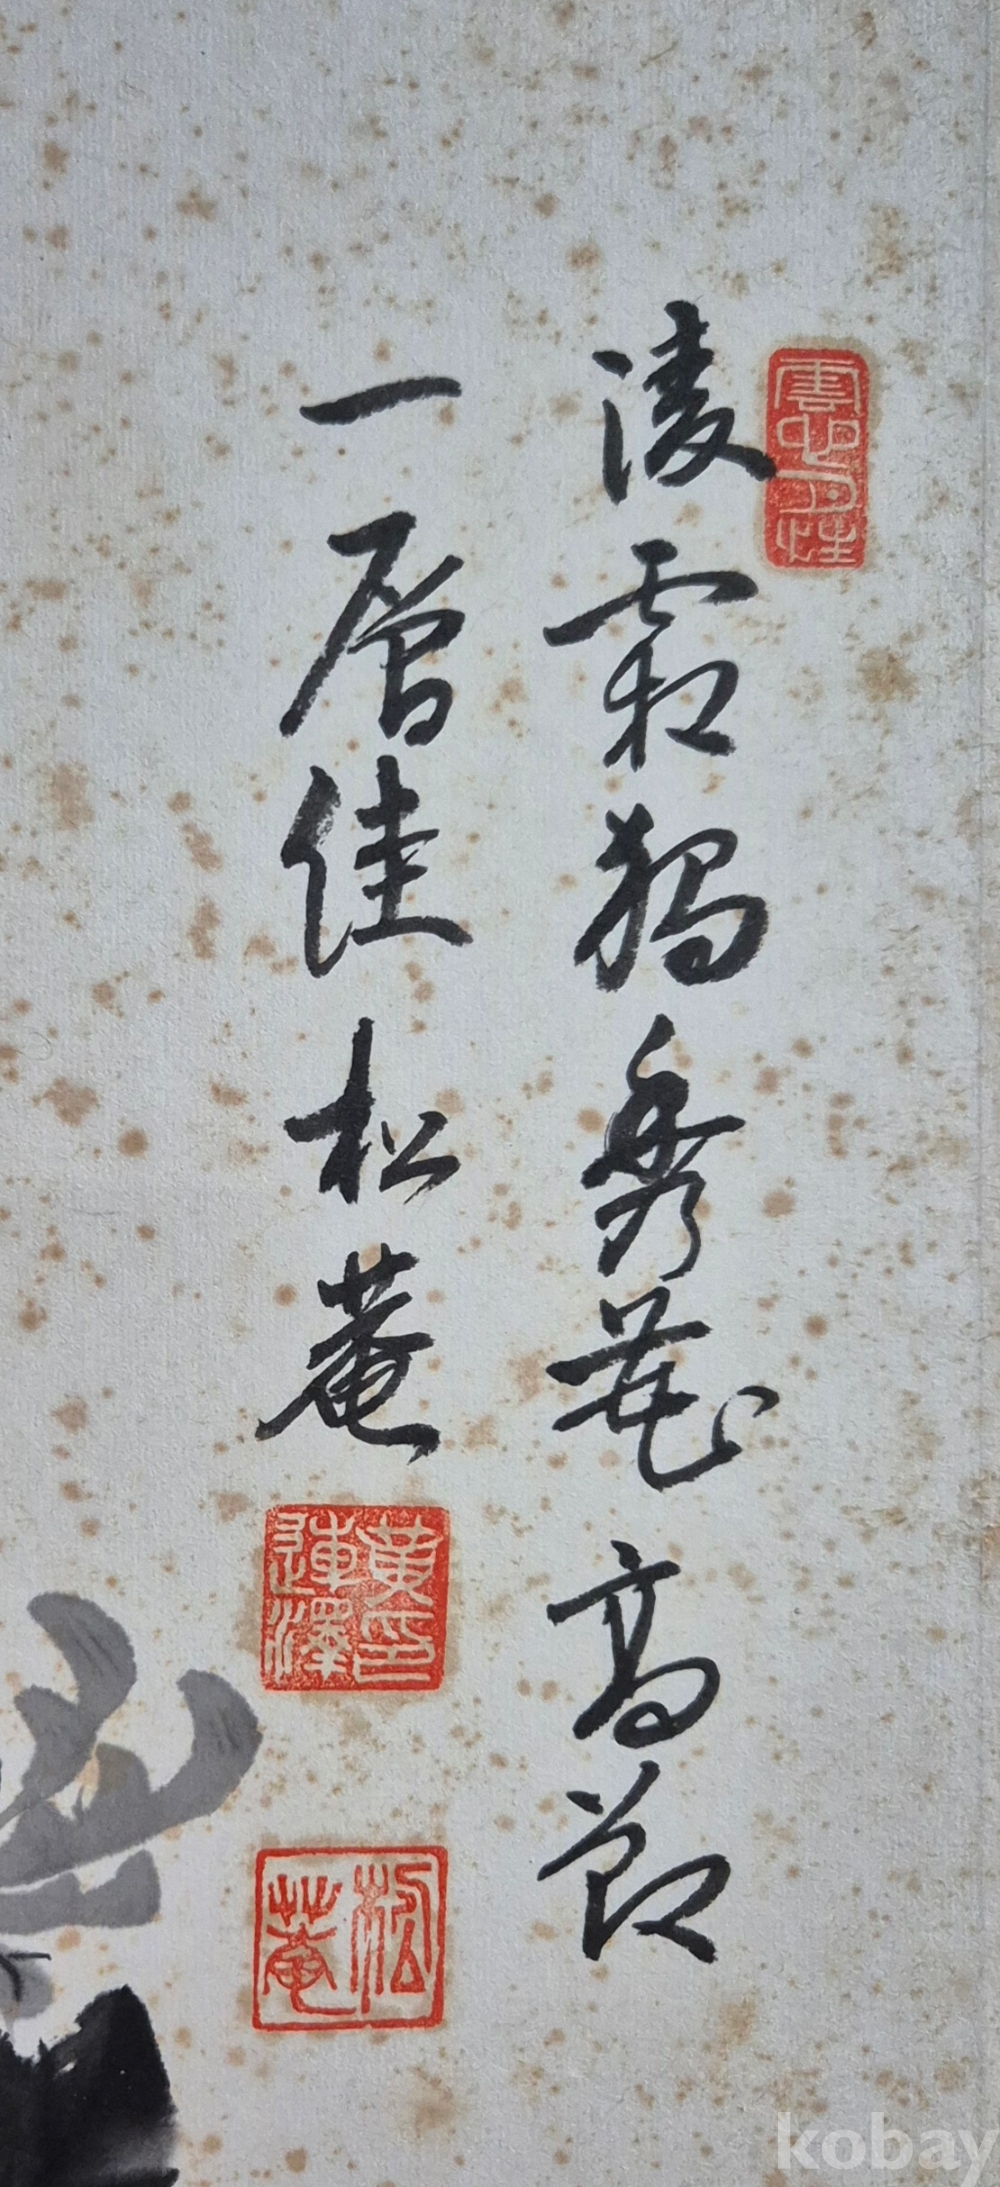 凌霜獨秀花高節
一層佳松菴
黃印
連澤
松
菴
kobay